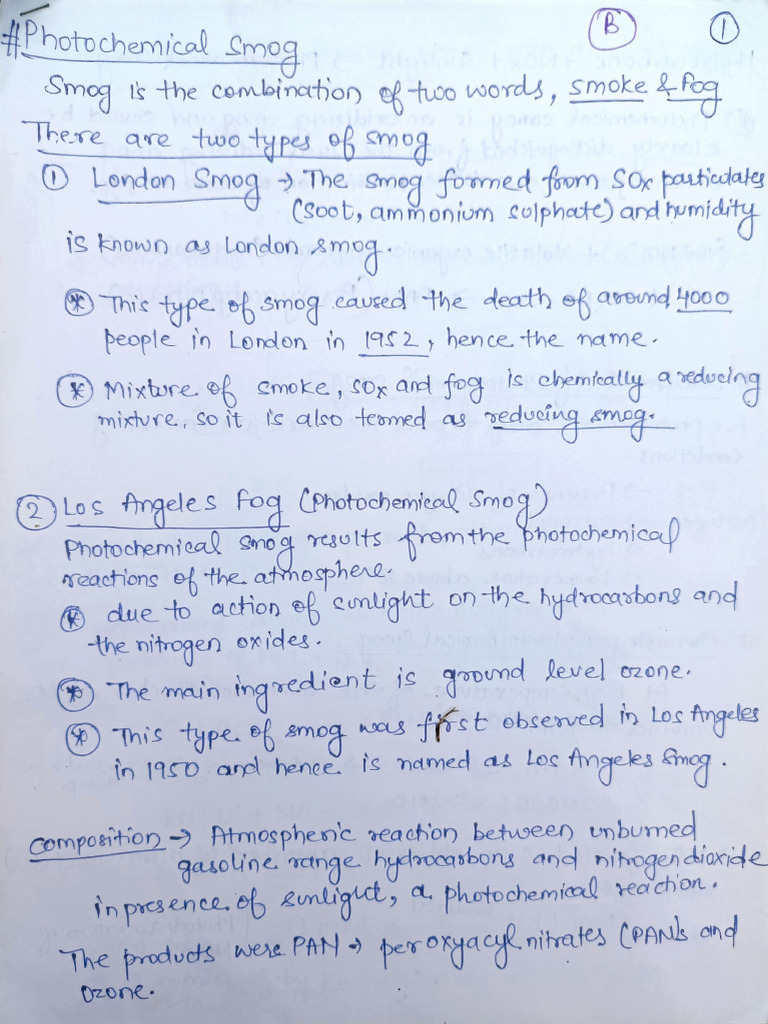 B 1
#Photochemical Smog
Smog is the combination of two words, smoke & fog
There are two types of smog
1 London Smog → The smog formed from SOx particulates
(soot, ammonium sulphate) and humidity
is known as London smog.
* This type of smog caused the death of around 4000
people in London in 1952, hence the name.
* Mixture of smoke, SOx and fog is chemically a reducing
mixture, so it is also termed as reducing smog.
2 Los Angeles Fog (Photochemical Smog)
Photochemical smog results from the photochemical
reactions of the atmosphere.
* due to action of sunlight on the hydrocarbons and
the nitrogen oxides.
* The main ingredient is ground level ozone.
* This type of smog was first observed in Los Angeles
in 1950 and hence is named as Los Angeles Smog.
Composition → Atmospheric reaction between unburned
gasoline range hydrocarbons and nitrogen dioxide
in presence of sunlight, a photochemical reaction.
The products were PAN → peroxyacyl nitrates (PANs and
ozone.